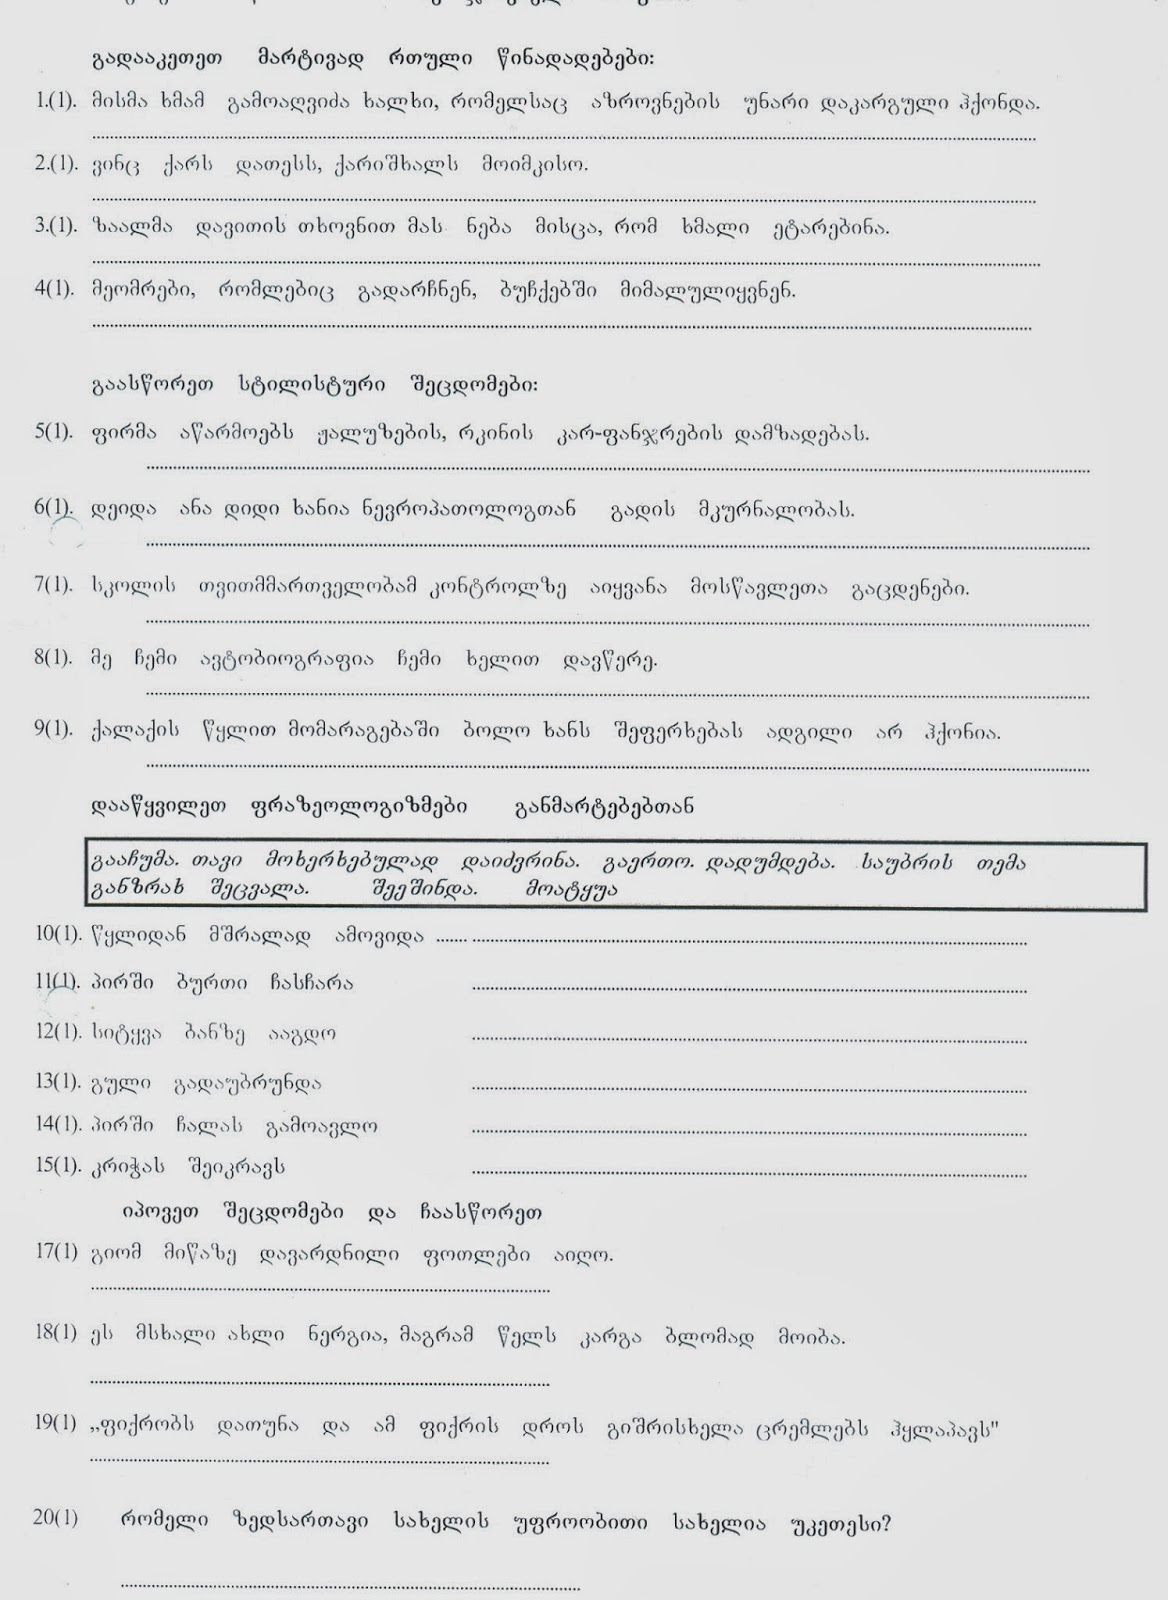 გადააკეთეთ მარტივად რთული წინადადებები:
1.(1). მისმა ხმამ გამოაღვიძა ხალხი, რომელსაც აზროვნების უნარი დაკარგული ჰქონდა.
2.(1). ვინც ქარს დათესს, ქარიშხალს მოიმკისო.
3.(1). ზაალმა დავითის თხოვნით მას ნება მისცა, რომ ხმალი ეტარებინა.
4(1). მეომრები, რომლებიც გადარჩნენ, ბუჩქებში მიმალულიყვნენ.
გაასწორეთ სტილისტური შეცდომები:
5(1). ფირმა აწარმოებს ჟალუზების, რკინის კარ-ფანჯრების დამზადებას.
6(1). დეიდა ანა დიდი ხანია ნევროპათოლოგთან გადის მკურნალობას.
7(1). სკოლის თვითმმართველობამ კონტროლზე აიყვანა მოსწავლეთა გაცდენები.
8(1). მე ჩემი ავტობიოგრაფია ჩემი ხელით დავწერე.
9(1). ქალაქის წყლით მომარაგებაში ბოლო ხანს შეფერხებას ადგილი არ ჰქონია.
დააწყვილეთ ფრაზეოლოგიზმები განმარტებებთან
გააჩუმა. თავი მოხერხებულად დაიძვრინა. გაერთო. დადუმდება. საუბრის თემა
განზრახ შეცვალა. შეეშინდა. მოატყუა
10(1). წყლიდან მშრალად ამოვიდა
11(1). პირში ბურთი ჩასჩარა
12(1). სიტყვა ბანზე ააგდო
13(1). გული გადაუბრუნდა
14(1). პირში ჩალას გამოავლო
15(1). კრიჭას შეიკრავს
იპოვეთ შეცდომები და ჩაასწორეთ
17(1) გიომ მიწაზე დავარდნილი ფოთლები აიღო.
18(1) ეს მსხალი ახლი ნერგია, მაგრამ წელს კარგა ბლომად მოიბა.
19(1) ,,ფიქრობს დათუნა და ამ ფიქრის დროს გიშრისხელა ცრემლებს ჰყლაპავს"
20(1) რომელი ზედსართავი სახელის უფროობითი სახელია უკეთესი?